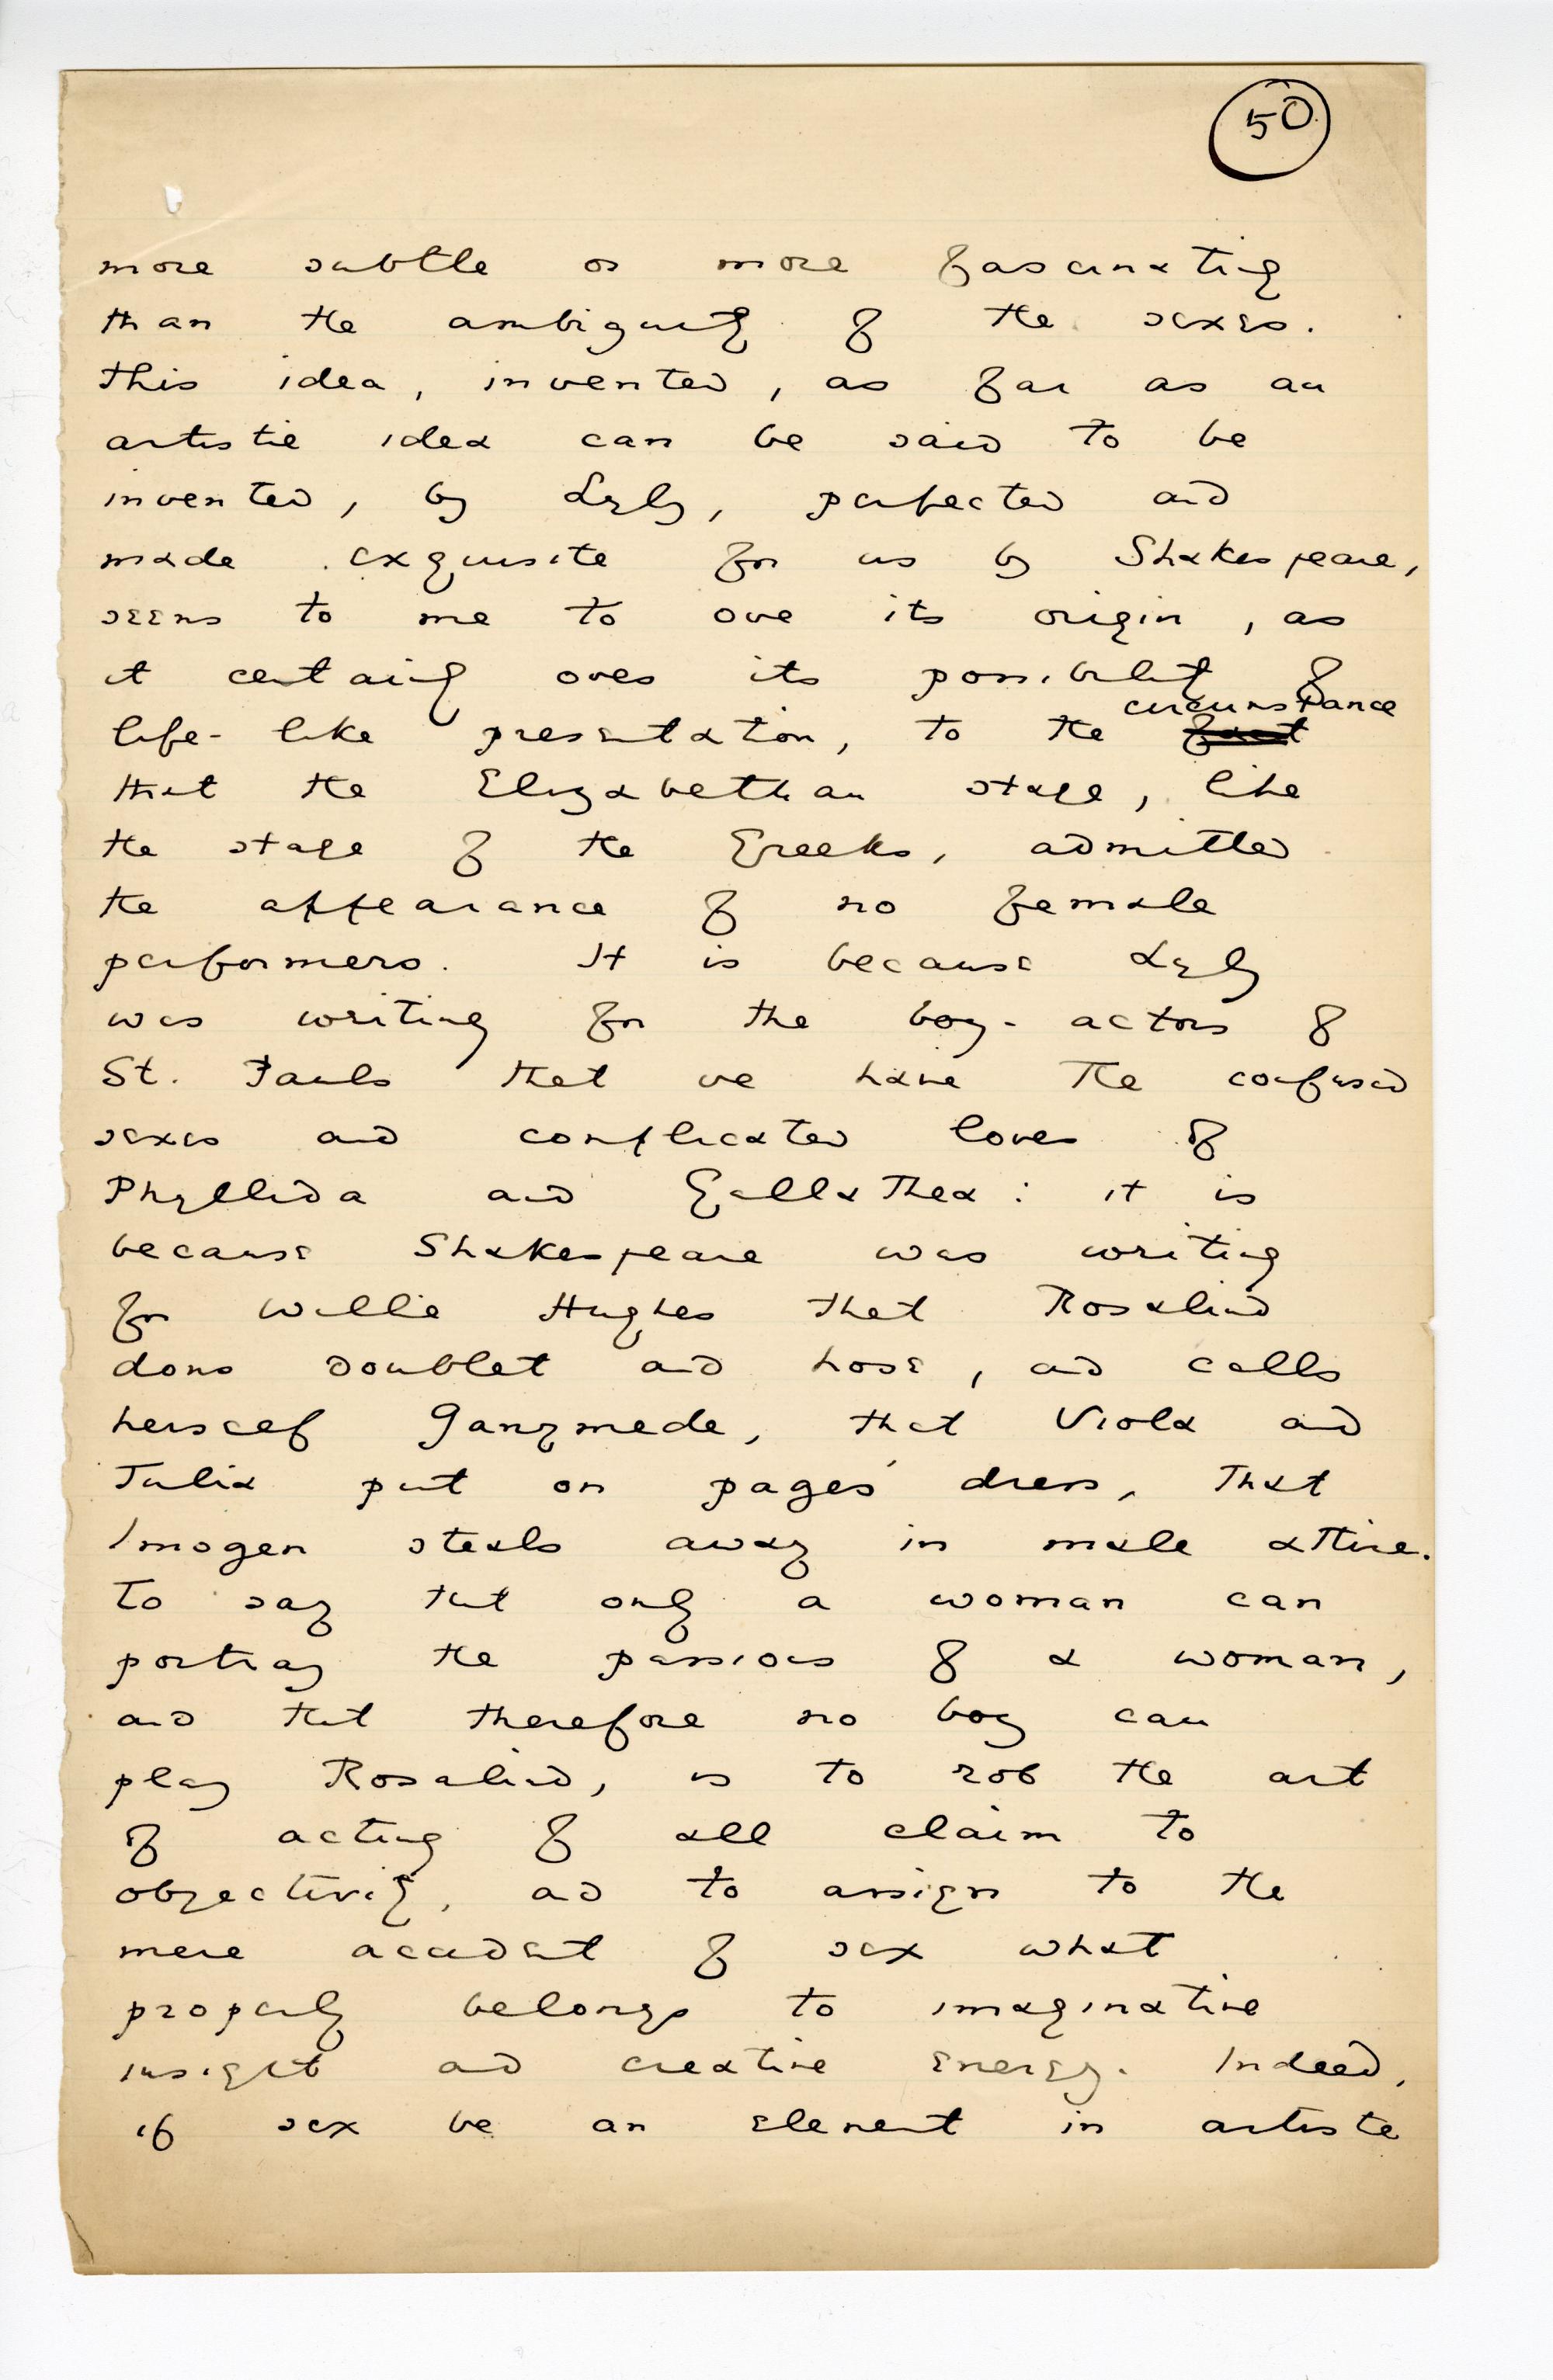 50
more subtle or more fascinating
than the ambiguity of the sexes.
This idea, invented, as far as an
artistic idea can be said to be
invented, by Lyly, perfected and
made exquisite for us by Shakespeare,
seems to me to owe its origin, as
it certainly owes its possibility of
circumstance
life-like presentation, to the fact
that the Elizabethan stage, like
the stage of the Greeks, admitted
the appearance of no female
performers. It is because Lyly
was writing for the boy-actors of
St. Pauls that we have the confused
sexes and complicated loves of
Phyllida and Gallathea: it is
because Shakespeare was writing
for Willie Hughes that Rosalind
dons doublet and hose, and calls
herself Ganymede, that Viola and
Julia put on pages' dress, that
Imogen steals away in male attire.
To say that only a woman can
portray the passions of a woman,
and that therefore no boy can
play Rosalind, is to rob the art
of acting of all claim to
objectivity, and to assign to the
mere accident of sex what
properly belongs to imaginative
insight and creative energy. Indeed,
if sex be an element in artistic